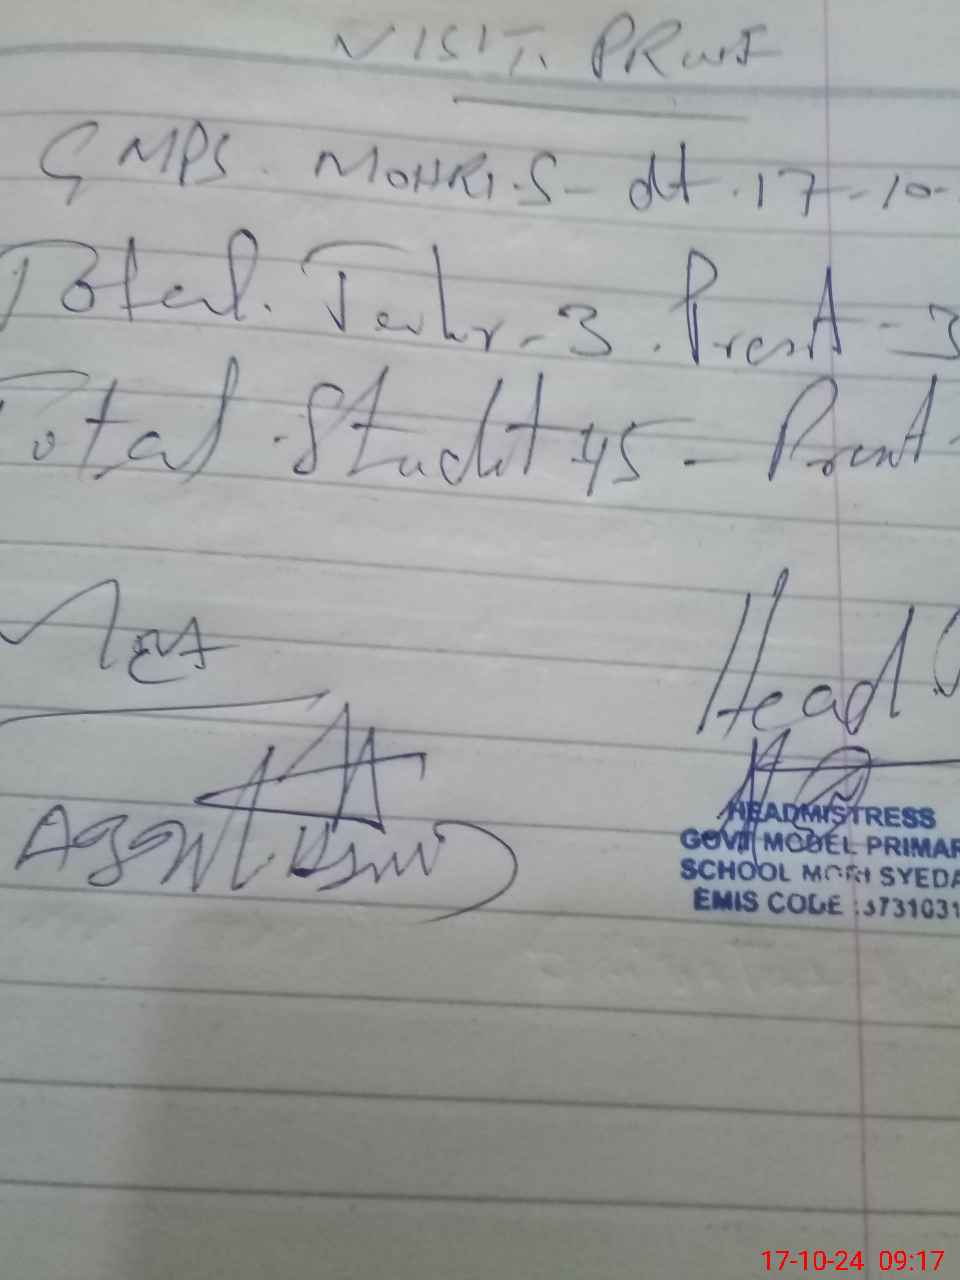 VISIT. PRooF
GMPS. MOHRI.S - dt. 17-10-
Total. Teachr - 3. Presnt - 3
Total. Studnt 45 - Presnt -
Head
HEADMISTRESS
GOVT MODEL PRIMAR
SCHOOL MORI SYEDA
EMIS CODE : 3731031
17-10-24 09:17